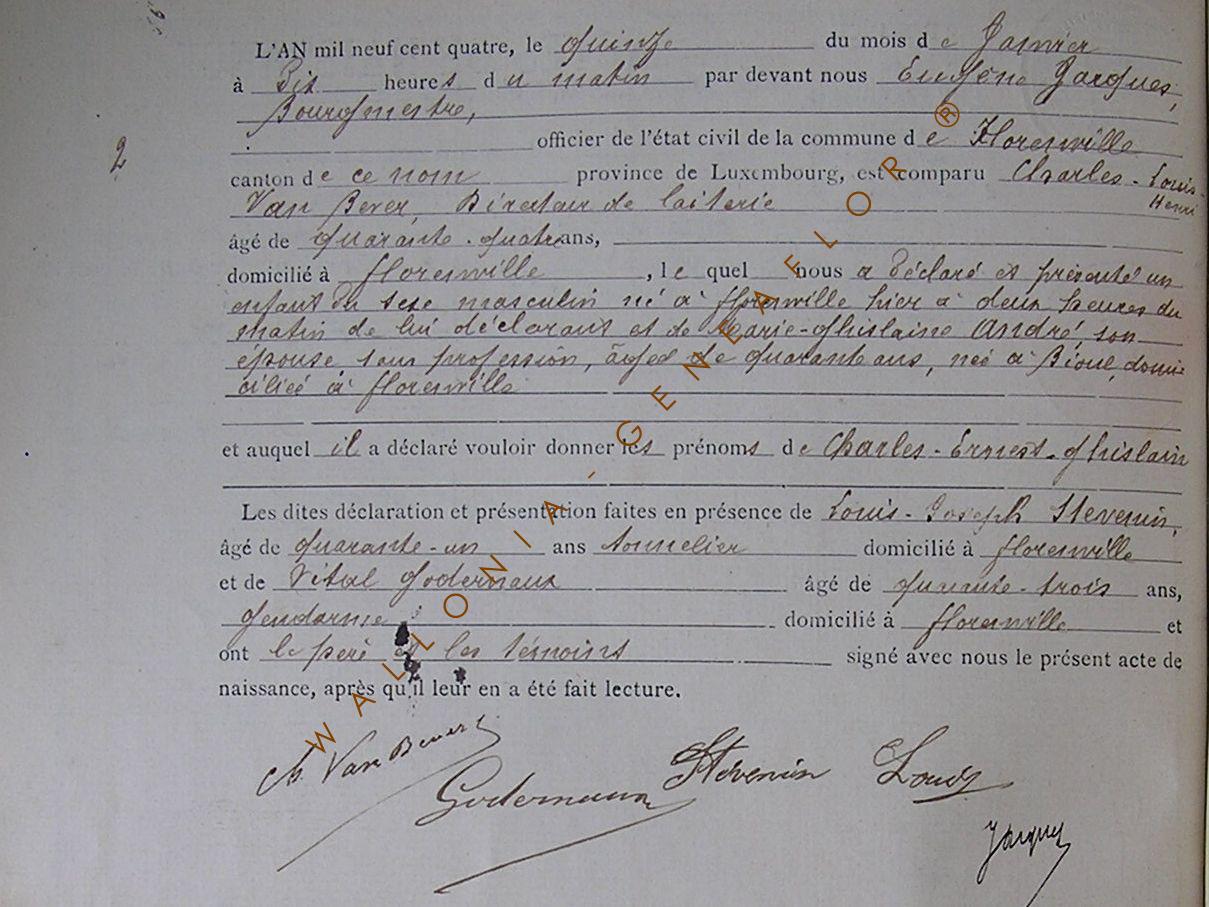 L'AN mil neuf cent quatre, le quinze du mois de Janvier
à Dix heures du matin par devant nous Eugène Jacques,
Bourgmestre,
officier de l'état civil de la commune de Florenville
2
canton de ce nom province de Luxembourg, est comparu Charles-Louis-
Henri
Van Bever, Directeur de laiterie
âgé de quarante-quatre ans,
domicilié à florenville, lequel nous a déclaré et présenté un
enfant du sexe masculin né à florenville hier à deux heures du
matin de lui déclarant et de Marie-Ghislaine André, son
épouse sans profession, âgée de quarante ans, née à Bioul, domi-
ciliée à florenville
et auquel il a déclaré vouloir donner les prénoms de Charles-Ernest-Ghislain
Les dites déclaration et présentation faites en présence de Louis-Joseph Stevenin,
âgé de quarante-un ans tonnelier domicilié à florenville
et de Vital Godernaux âgé de quarante-trois ans,
Gendarme domicilié à florenville et
ont le père et les témoins signé avec nous le présent acte de
naissance, après qu'il leur en a été fait lecture.
WALLONIA-GENEAFLOR ®
Ch. Van Bever
Godernaux
Stévenin Louis
Jacques